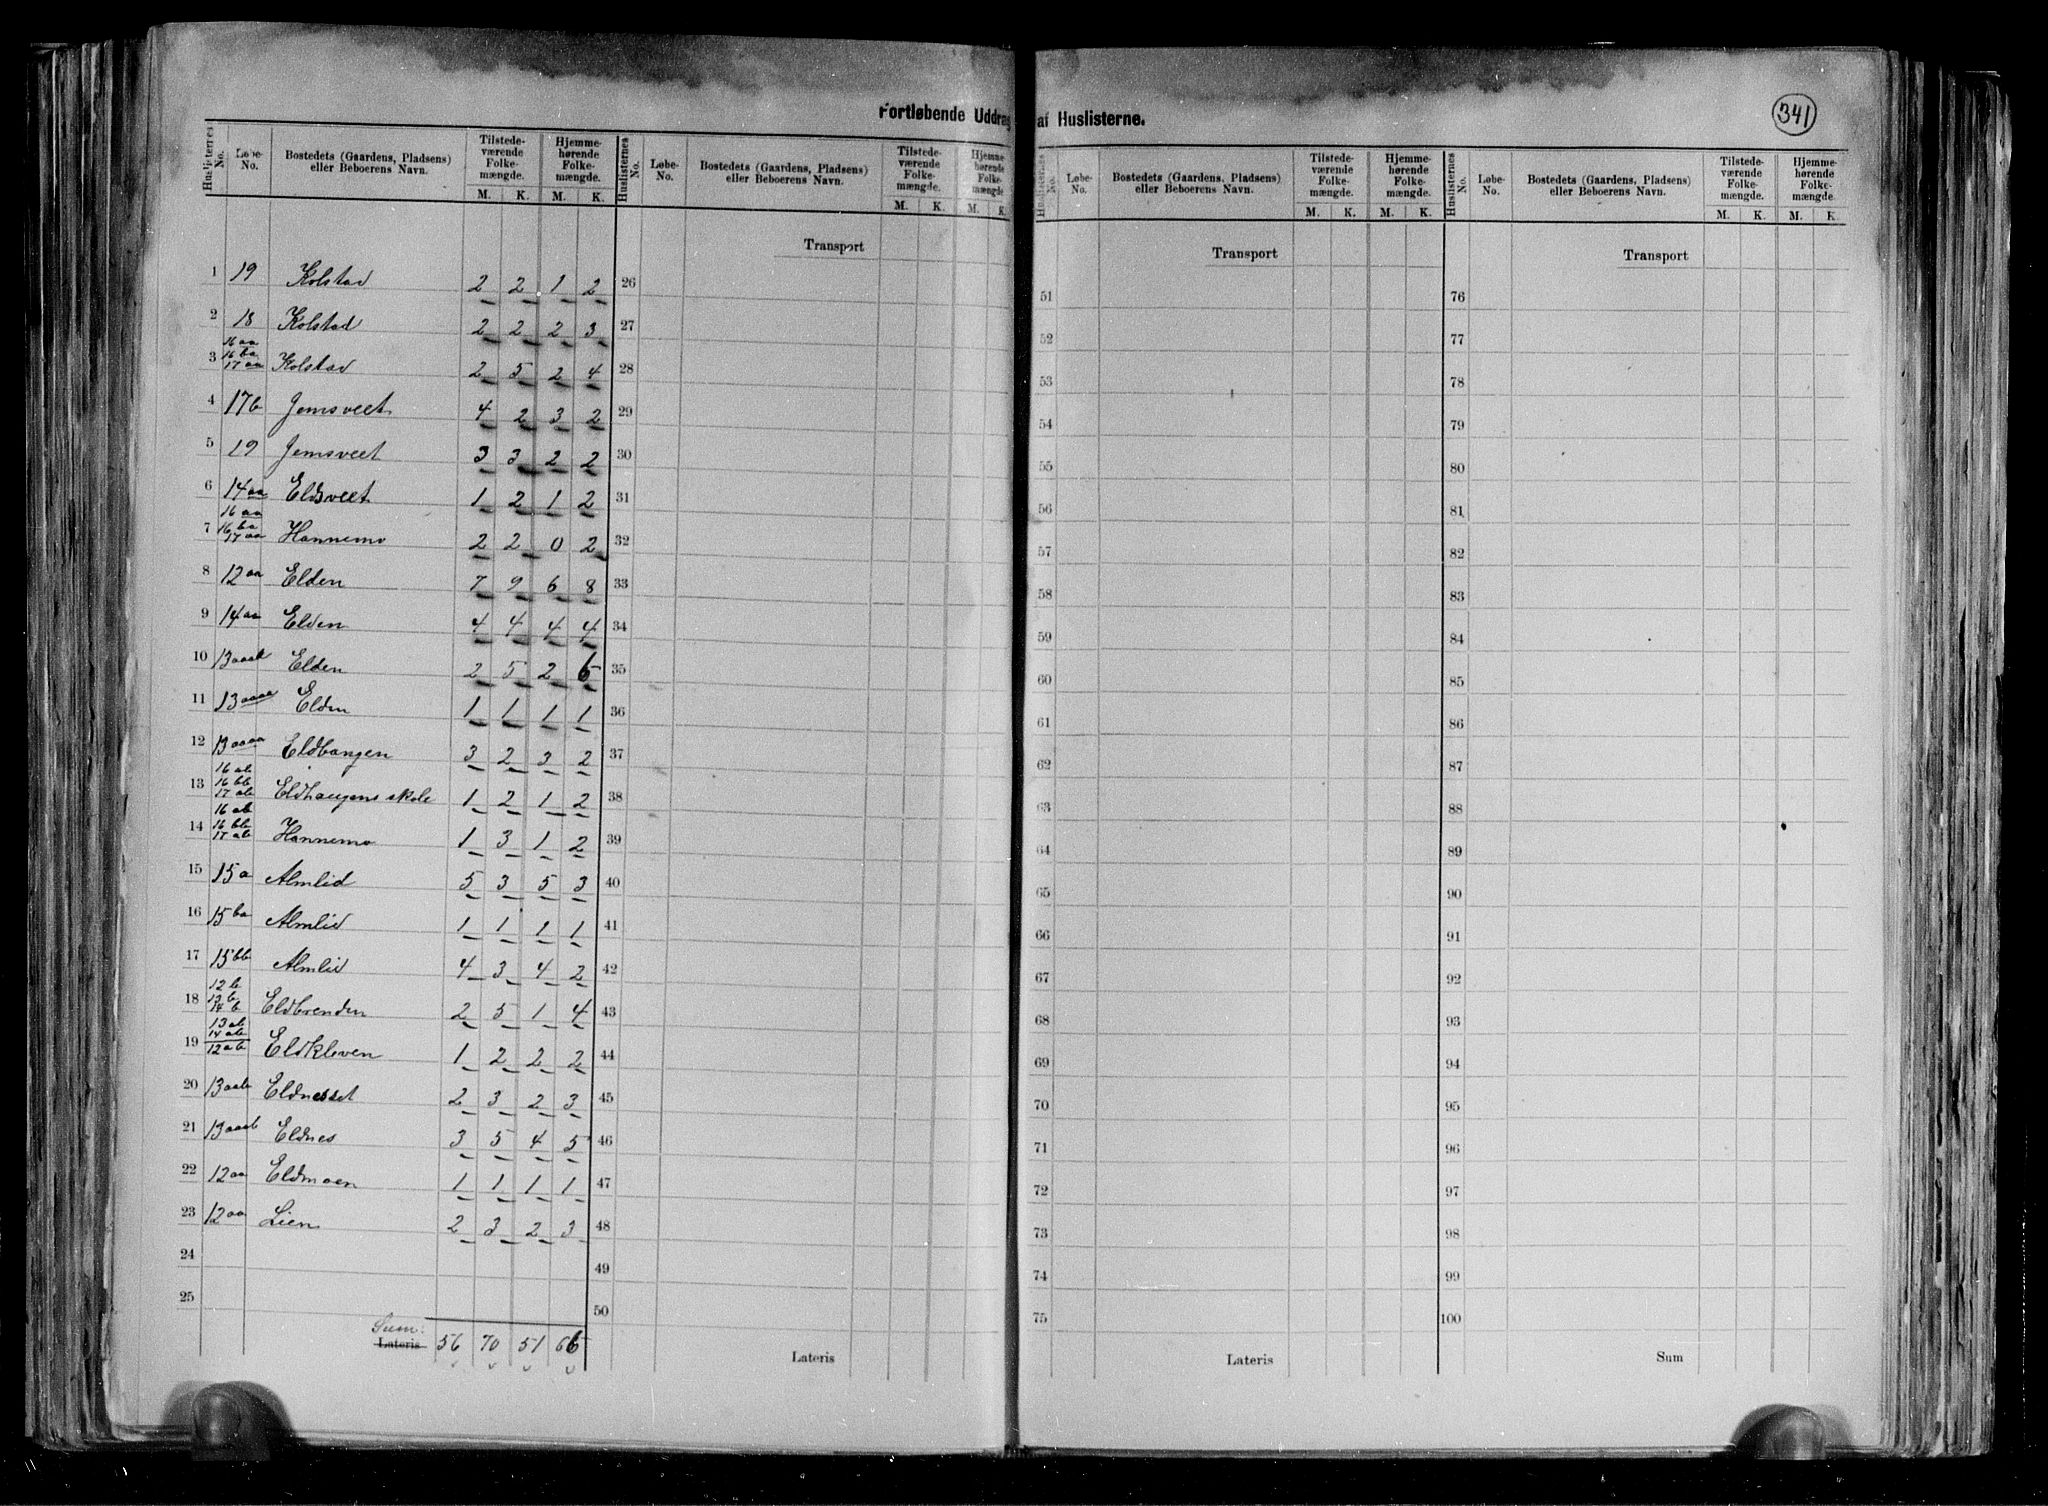 Fortløbende Uddrag af Huslisterne.
341
Huslisternes No. Løbe-No. Bostedets (Gaardens, Pladsens) eller Beboerens Navn. Tilstedeværende Folkemængde. M. K. Hjemmehørende Folkemængde. M. K.
Huslisternes No. Løbe-No. Bostedets (Gaardens, Pladsens) eller Beboerens Navn. Tilstedeværende Folkemængde. M. K. Hjemmehørende Folkemængde M. K.
Huslisternes No. Løbe-No. Bostedets (Gaardens, Pladsens) eller Beboerens Navn. Tilstedeværende Folkemængde. M. K. Hjemmehørende Folkemængde. M. K.
Huslisternes No. Løbe-No. Bostedets (Gaardens, Pladsens) eller Beboerens Navn. Tilstedeværende Folkemængde. M. K. Hjemmehørende Folkemængde. M. K.
Transport Transport Transport
1 19 Kolstad 2 2 1 2 26 51 76
2 18 Kolstad 2 2 2 3 27 52 77
3 16 aa 16 ba 17 aa Kolstad 2 5 2 4 28 53 78
4 17b Jemsveet 4 2 3 2 29 54 79
5 19 Jemsveet 3 3 2 2 30 55 80
6 14 aa Eldsveet 1 2 1 2 31 56 81
7 16 aa 16 ba 17 aa Hannemo 2 2 0 2 32 57 82
8 12 aa Elden 7 9 6 8 33 58 83
9 14 aa Elden 4 4 4 4 34 59 84
10 13 aaab Elden 2 5 2 6 35 60 85
11 13 aaaa Elden 1 1 1 1 36 61 86
12 13 aaaa Eldbangen 3 2 3 2 37 62 87
13 16 ab 16 bb 17 ab Eldhaugens skole 1 2 1 2 38 63 88
14 16 ab 16 bb 17 ab Hannemo 1 3 1 2 39 64 89
15 15 a Almlid 5 3 5 3 40 65 90
16 15 ba Almlid 1 1 1 1 41 66 91
17 15 bb Almlid 4 3 4 2 42 67 92
18 12 b 13 b 14 b Eldbrenden 2 5 1 4 43 68 93
19 13 ab 14 ab 12 ab Eldkleven 1 2 2 2 44 69 94
20 13 aab Eldnesset 2 3 2 3 45 70 95
21 13 aaab Eldnes 3 5 4 5 46 71 96
22 12 aa Eldmoen 1 1 1 1 47 72 97
23 12 aa Lien 2 3 2 3 48 73 98
24 49 74 99
25 50 75 100
Sum:
Lateris 56 70 51 66 Lateris Lateris Sum